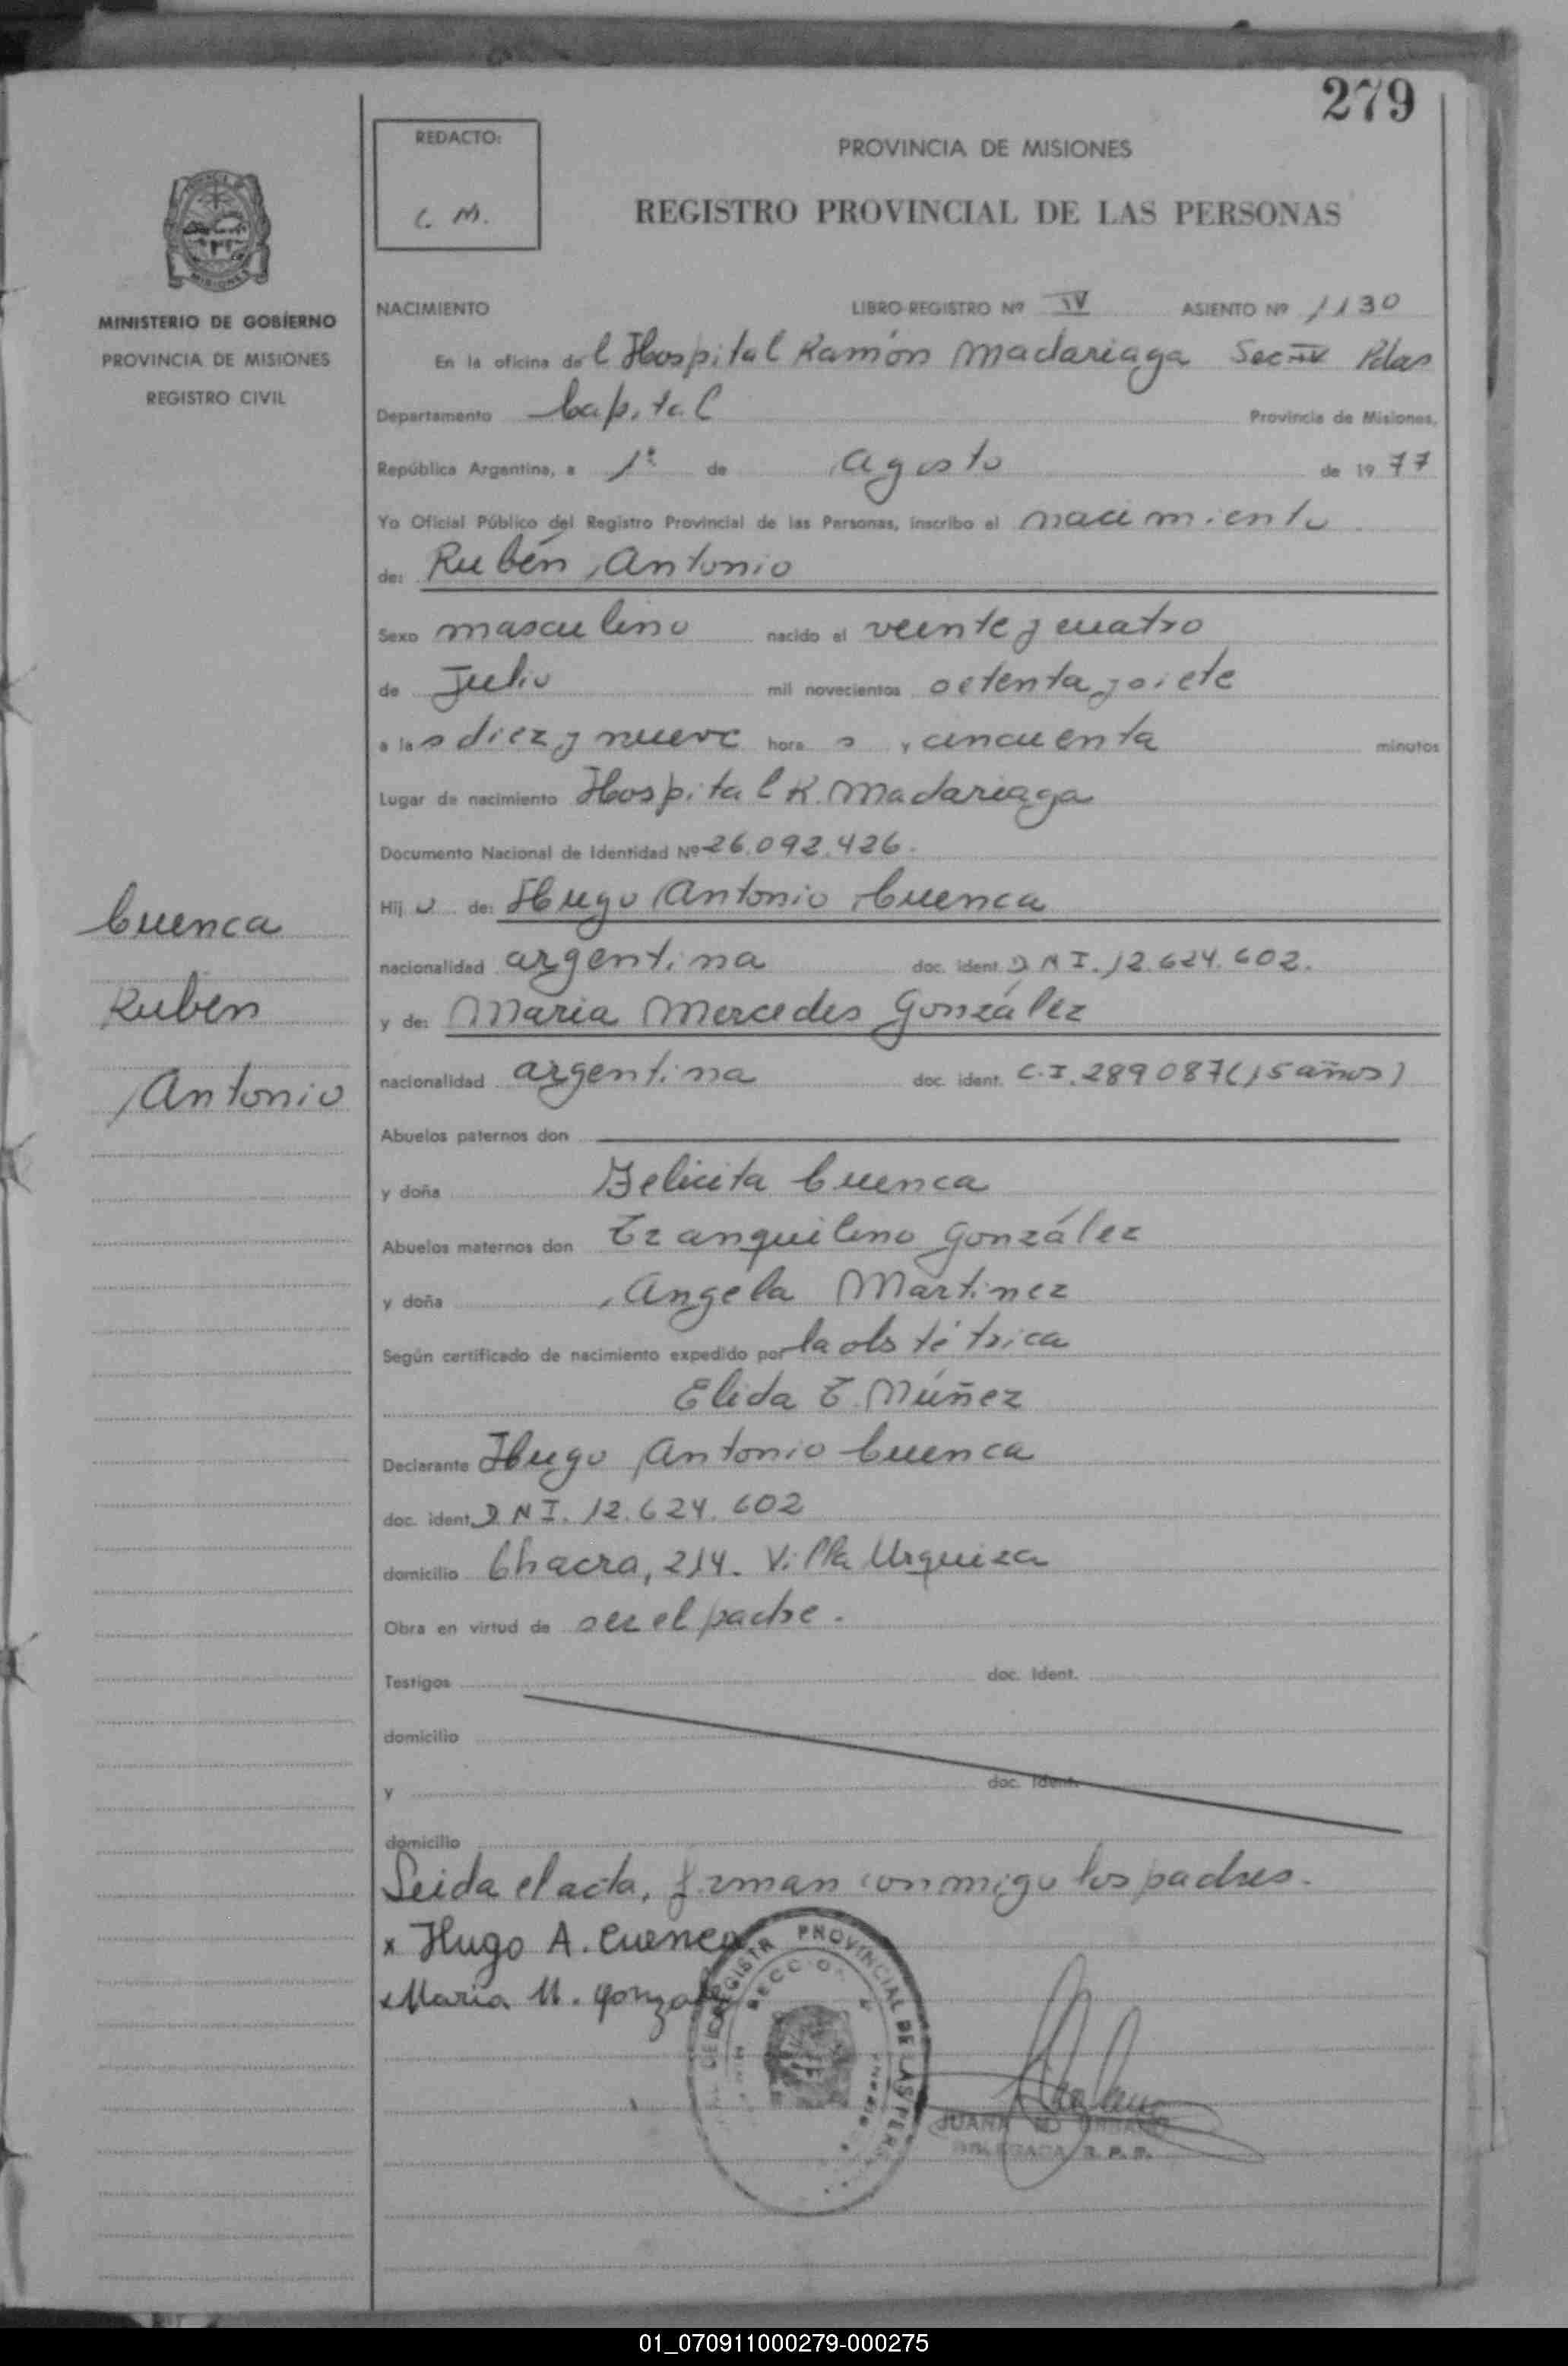 279
REDACTO:
C. M.
PROVINCIA DE MISIONES
REGISTRO PROVINCIAL DE LAS PERSONAS
MINISTERIO DE GOBIERNO
PROVINCIA DE MISIONES
REGISTRO CIVIL
NACIMIENTO LIBRO-REGISTRO Nº IV ASIENTO Nº 1130
En la oficina del Hospital Ramón Madariaga Sec IV Pdas
Departamento Capital Provincia de Misiones,
República Argentina, a 1º de Agosto de 1977
Yo Oficial Público del Registro Provincial de las Personas, inscribo el nacimiento
de: Rubén Antonio
Sexo masculino nacido el veinte y cuatro
de Julio mil novecientos setenta y siete
a las diez y nueve horas y cincuenta minutos
Lugar de nacimiento Hospital R. Madariaga
Documento Nacional de Identidad Nº 26.092.426.
Hijo de: Hugo Antonio Cuenca
nacionalidad argentina doc. ident. D N I. 12.624.602.
y de: Maria Mercedes González
nacionalidad argentina doc. ident. C.I. 289087 (15 años)
Cuenca
Ruben
Antonio
Abuelos paternos don
y doña Felicita Cuenca
Abuelos maternos don Tranquilino González
y doña Angela Martinez
Según certificado de nacimiento expedido por la obstétrica
Elida T. Núñez
Declarante Hugo Antonio Cuenca
doc. ident. D N I. 12.624.602
domicilio Chacra, 214. Villa Urquiza
Obra en virtud de ser el padre.
Testigos doc. Ident.
domicilio
y doc. Ident.
domicilio
Leida el acta, firman conmigo los padres.
x Hugo A. Cuenca
x Maria M. Gonzalez
REGISTR PROVINCIAL DE LAS PER
SECCIO
JUANA
DELEGADA R. P. P.
01_070911000279-000275